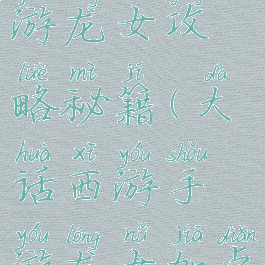 游龙女攻
lüè mì jí dà
略秘籍(大
huà xī yóu shǒu
话西游手
yóu lóng nǚ jiā diǎn
游龙女加点